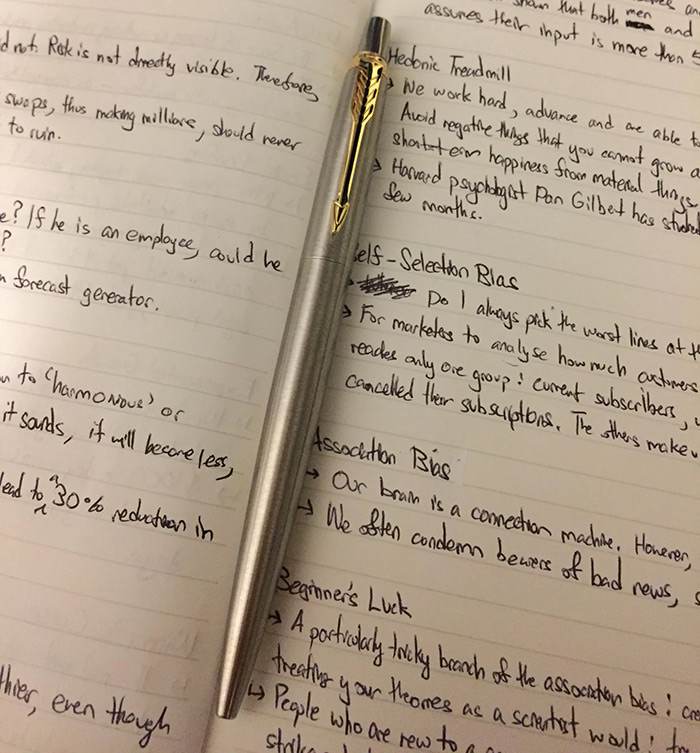 d not. Risk is not directly visible. Therefore,
swaps, thus making millions, should never
to ruin.
e? If he is an employee, could he
?
n forecast generator.
to 'harmonous' or
it sounds, it will become less,
lead to a 30% reduction in
thier, even though
shown that both men and
assures their input is more than 5
Hedonic Treadmill
→ We work hard, advance and are able to
Avoid negative things that you cannot grow a
short-term happiness from material things.
→ Harvard psychologist Dan Gilbert has studied
few months.
Self-Selection Bias
→ Do I always pick the worst lines at th
→ For marketers to analyse how much customers
reaches only one group: current subscribers,
cancelled their subscriptions. The others make
Association Bias
→ Our brain is a connection machine. However,
→ We often condemn bearers of bad news, s
Beginner's Luck
→ A particularly tricky branch of the association bias: cre
treating your theories as a scientist would: t
→ People who are new to a